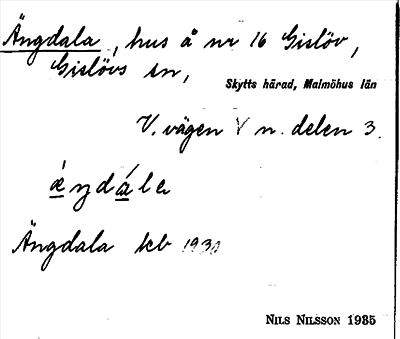 Ängdala, hus å nr 16 Gislöv,
Gislövs sn,
Skytts härad, Malmöhus län
V. vägen V n. delen 3.
ǽŋdálɐ
Ängdala kb 1930
NILS NILSSON 1935